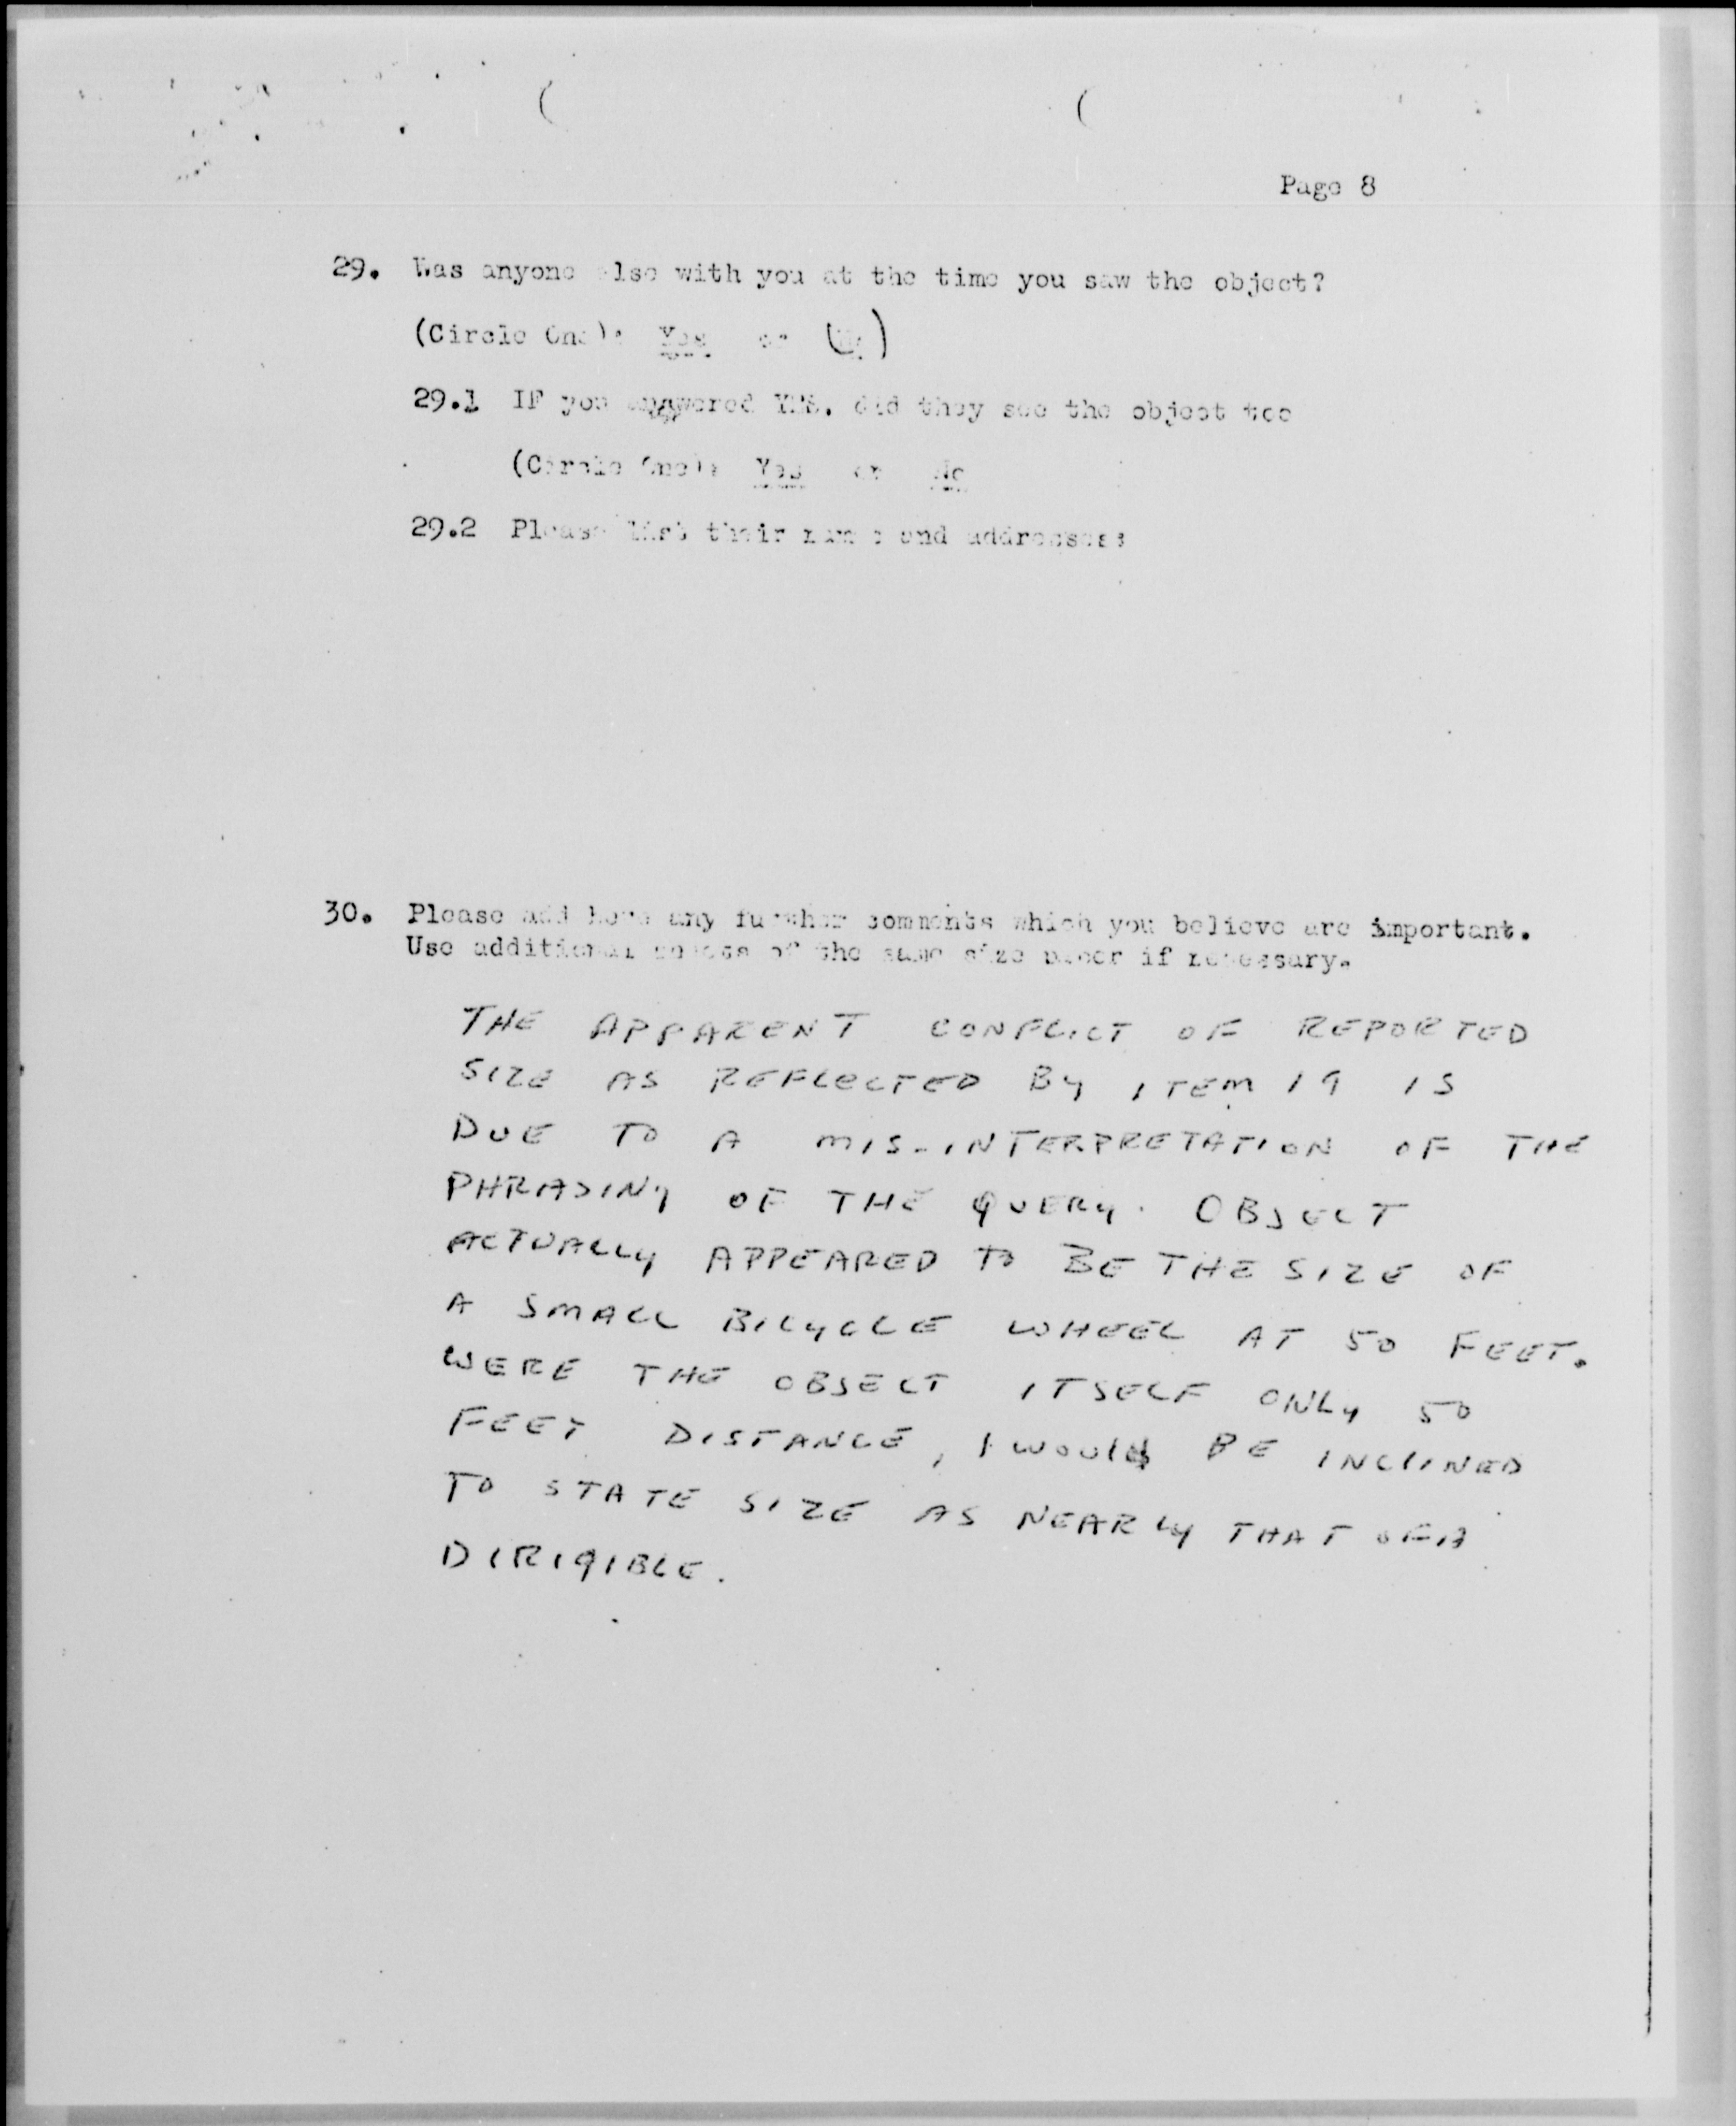 Page 8
29. Was anyone else with you at the time you saw the object?
(Circle One): Yes or (No)
29.1 IF you answered YES, did they see the object too
(Circle One): Yes or No
29.2 Please list their names and addresses:
30. Please add here any further comments which you believe are important.
Use additional sheets of the same size paper if necessary.
THE APPARENT CONFLICT OF REPORTED
SIZE AS REFLECTED BY ITEM 19 IS
DUE TO A MIS-INTERPRETATION OF THE
PHRASING OF THE QUERY. OBJECT
ACTUALLY APPEARED TO BE THE SIZE OF
A SMALL BICYCLE WHEEL AT 50 FEET.
WERE THE OBJECT ITSELF ONLY 50
FEET DISTANCE, I WOULD BE INCLINED
TO STATE SIZE AS NEARLY THAT OF A
DIRIGIBLE.